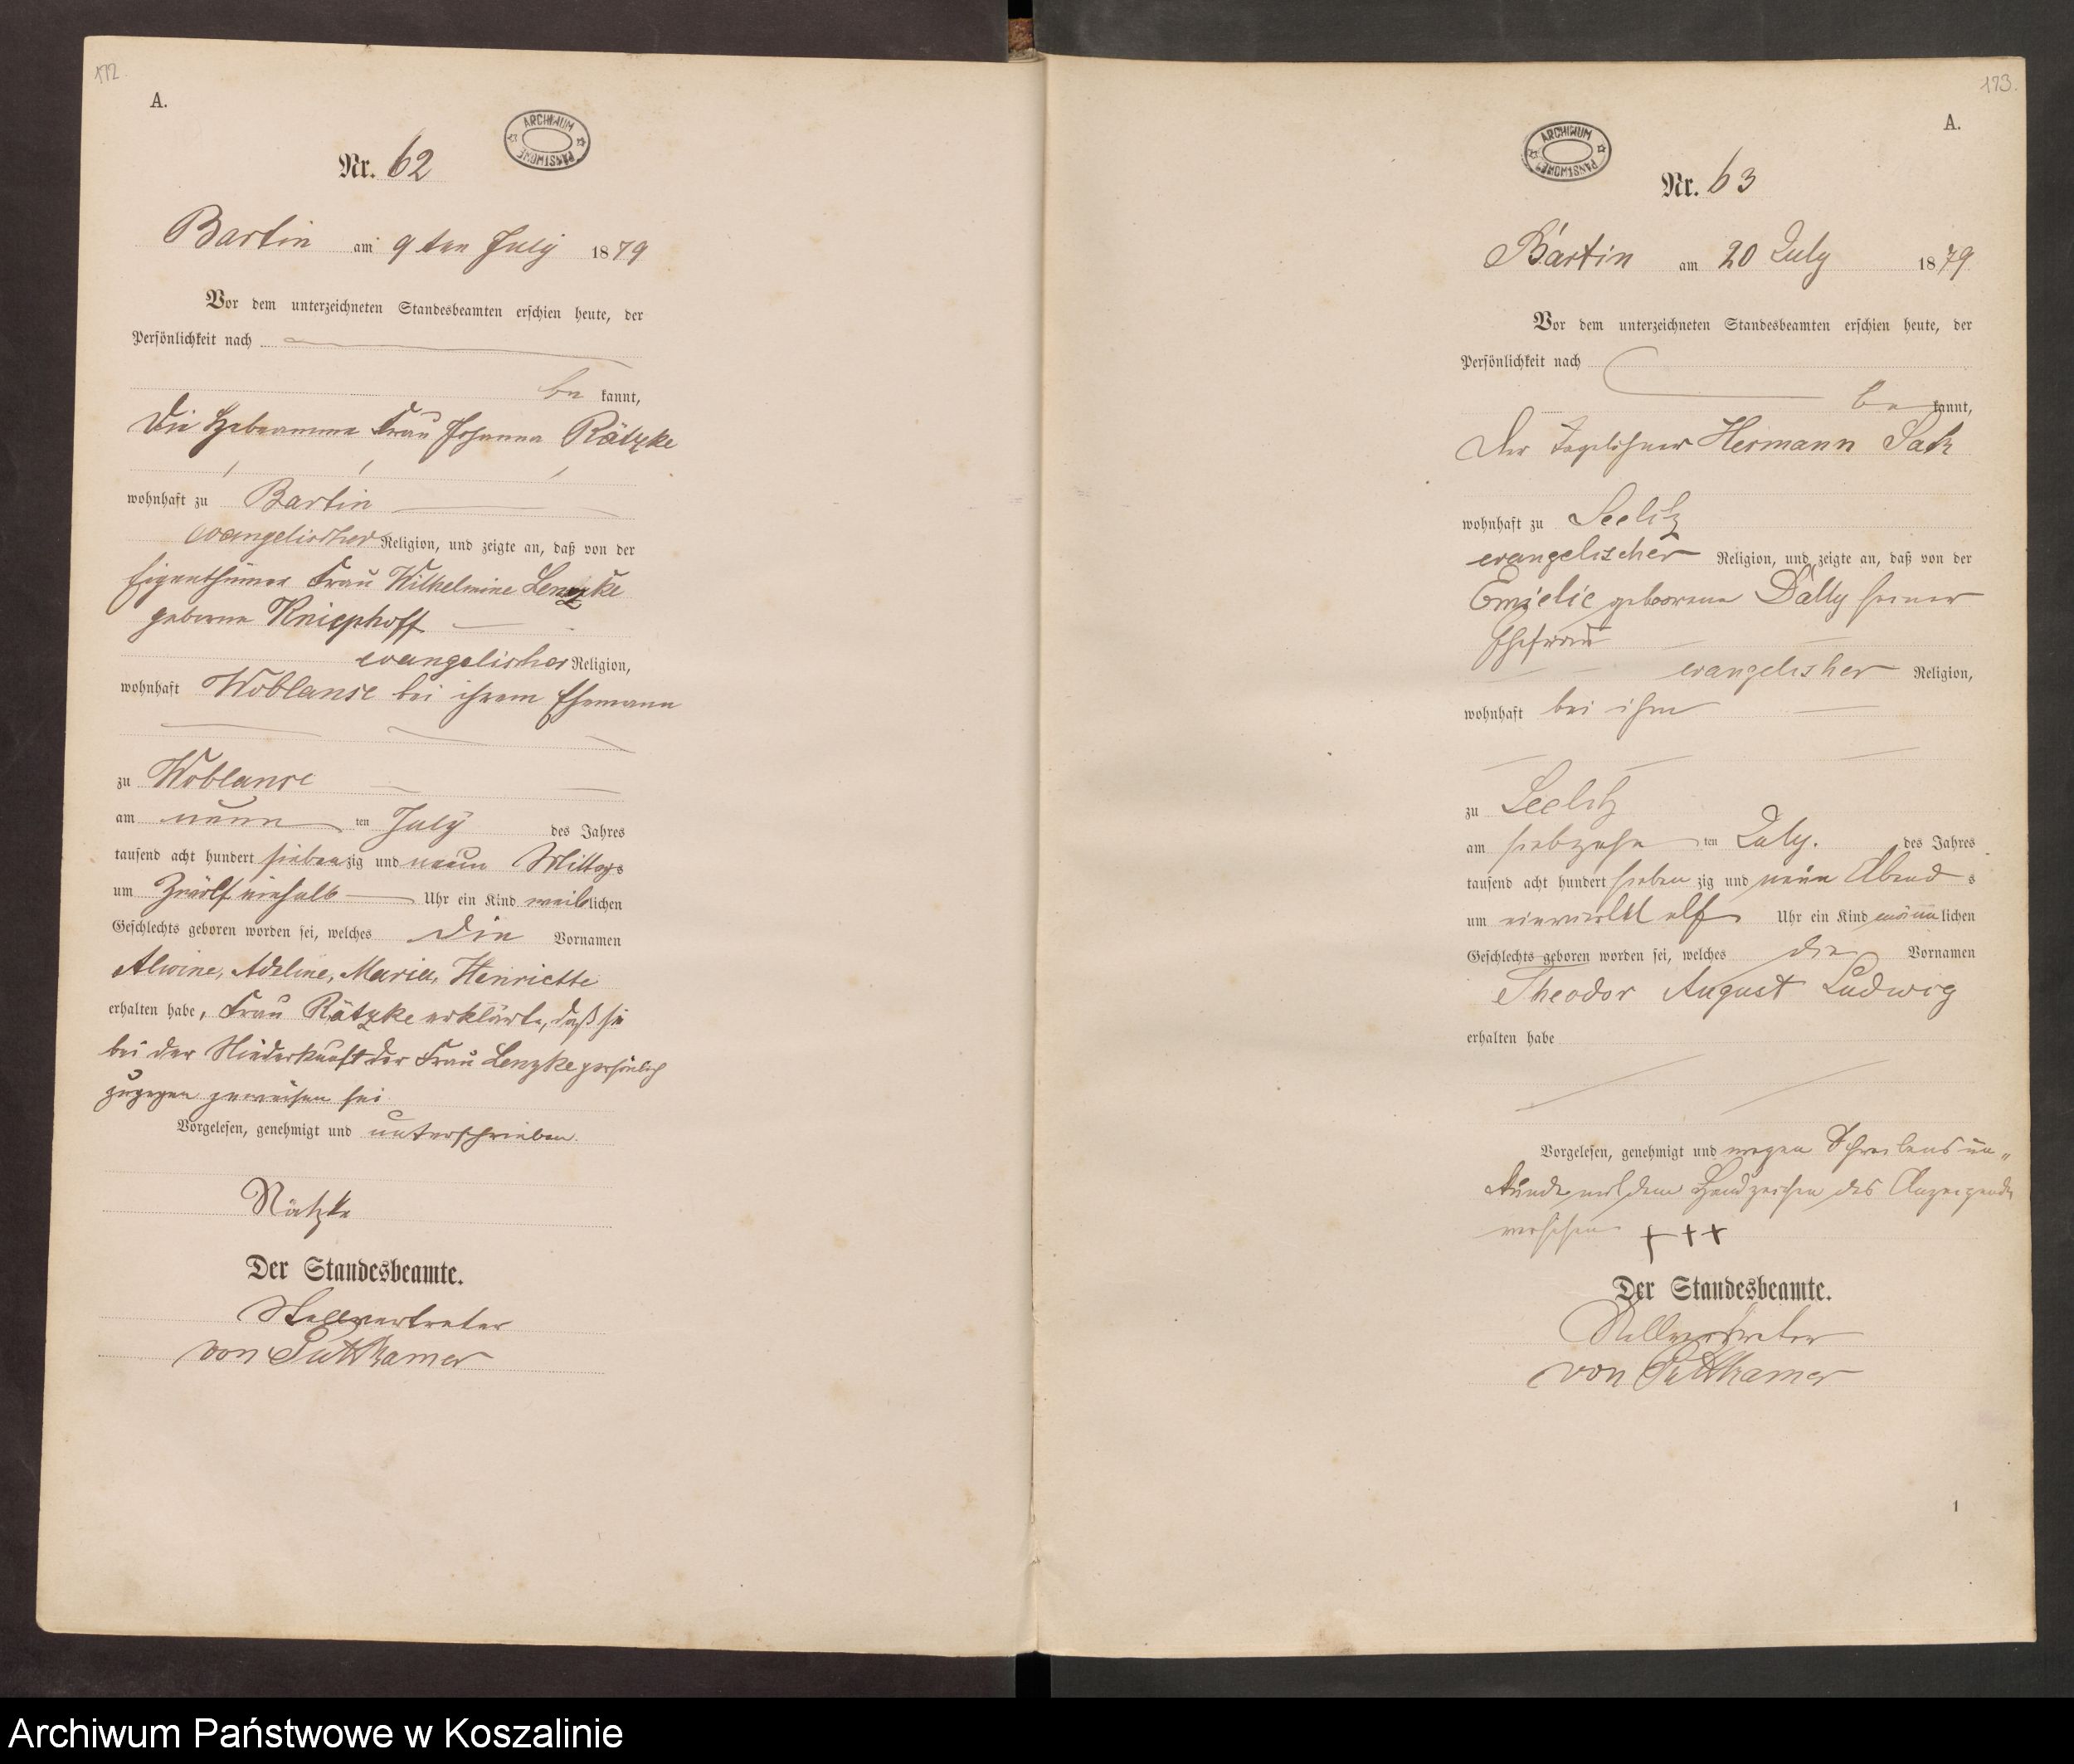 172.
A.
ARCHIWUM PAŃSTWOWE
Nr. 62
Bartin am 9ten July 1879
Vor dem unterzeichneten Standesbeamten erschien heute, der
Persönlichkeit nach
be kannt,
Die Hebeamme Frau Johanna Rätzke
wohnhaft zu Bartin
evangelischer Religion, und zeigte an, daß von der
Eigenthümer Frau Wilhelmine Lenzke
geborne Kniephoff
evangelischer Religion,
wohnhaft Woblanse bei ihrem Ehemann
zu Woblanse
am neun ten July des Jahres
tausend acht hundert siebenzig und neun Mittags
um Zwölfeinhalb Uhr ein Kind weiblichen
Geschlechts geboren worden sei, welches die Vornamen
Alwine, Adeline, Maria, Henriette
erhalten habe, Frau Rätzke erklärte, daß sie
bei der Niederkunft der Frau Lenzke persönlich
zugegen gewesen sei
Vorgelesen, genehmigt und unterschrieben.
Rätzke
Der Standesbeamte.
Stellvertreter
von Puttkamer
173.
A.
ARCHIWUM PAŃSTWOWE
Nr. 63
Bartin am 20 July 1879
Vor dem unterzeichneten Standesbeamten erschien heute, der
Persönlichkeit nach
be kannt,
Der Tagelöhner Hermann
wohnhaft zu Seelitz
evangelischer Religion, und zeigte an, daß von der
Emielie geborene Dally seiner
Ehefrau
evangelisher Religion,
wohnhaft bei ihm
zu Seelitz
am siebzehn ten July. des Jahres
tausend acht hundert sieben zig und neun Abend s
um einviertel elf Uhr ein Kind männlichen
Geschlechts geboren worden sei, welches die Vornamen
Theodor August Ludwig
erhalten habe
Vorgelesen, genehmigt und wegen Schreibensun„
kunde mit dem Handzeichen des Anzeigende
versehen +++
Der Standesbeamte.
Stellvertreter
von Puttkamer
1
Archiwum Państwowe w Koszalinie